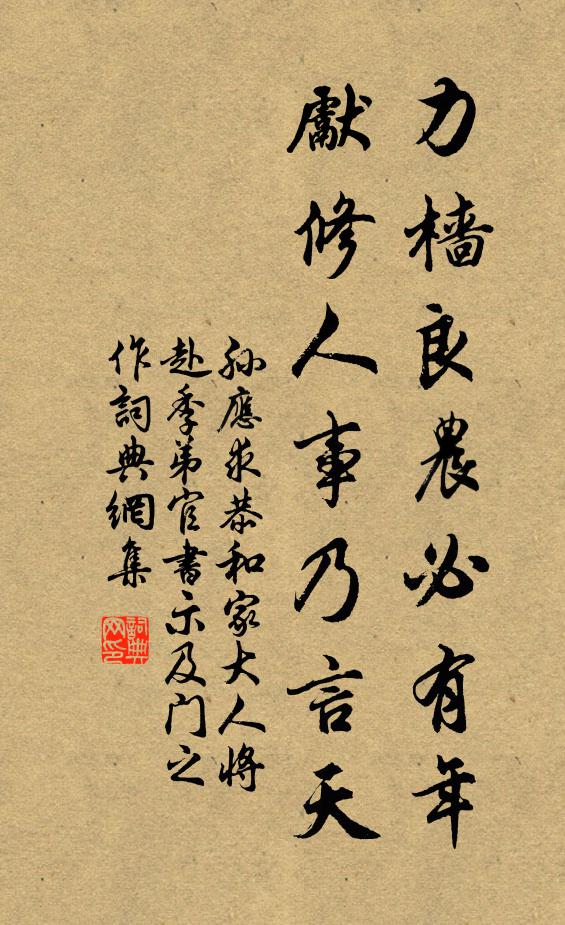 力檣良農必有年
獻修人事乃言天
孫應求恭和家大人將
赴季弟官書示及門之
作詞典網集
詞典网印